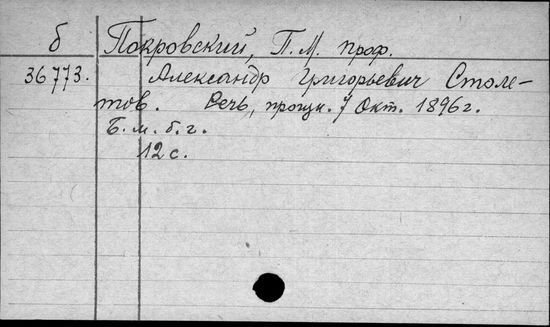 б Покровский, П.М. проф.
36773. Александр Григорьевич Столе-
тов. Речь, прощн. 7 Окт. 1896 г.
Б.м.б.г.
12 с.